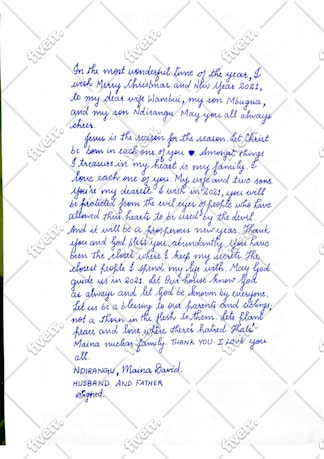 In the most wonderful time of the year, I
wish Merry Christmas and New Year 2021,
to my dear wife Wambui, my son Mbugua,
and my son Ndirangu. May you all always
cheer.
Jesus is the reason for the reason. Let Christ
be born in each one of you ♥. Amongst things
I treasure in my heart is my family. I
love each one of you. My wife and two sons
you're my dearest. I wish in 2021, you will
be protected from the evil eyes of people who have
allowed their hearts to be used by the devil.
And it will be a prosperous new year. Thank
you and God bless you abundantly. You have
been the closet where I keep my secrets. The
closest people I spend my life with. May God
guide us in 2021. Let Our house know God
as always and let God be known by everyone.
Let us be a blessing to our parents and siblings,
not a thorn in the flesh to them. Lets plant
peace and love where there's hatred. Thats
Maina nuclear family. THANK YOU. I LOVE you
all.
NDIRANGU, Maina David.
HUSBAND AND FATHER
signed.
fiverr